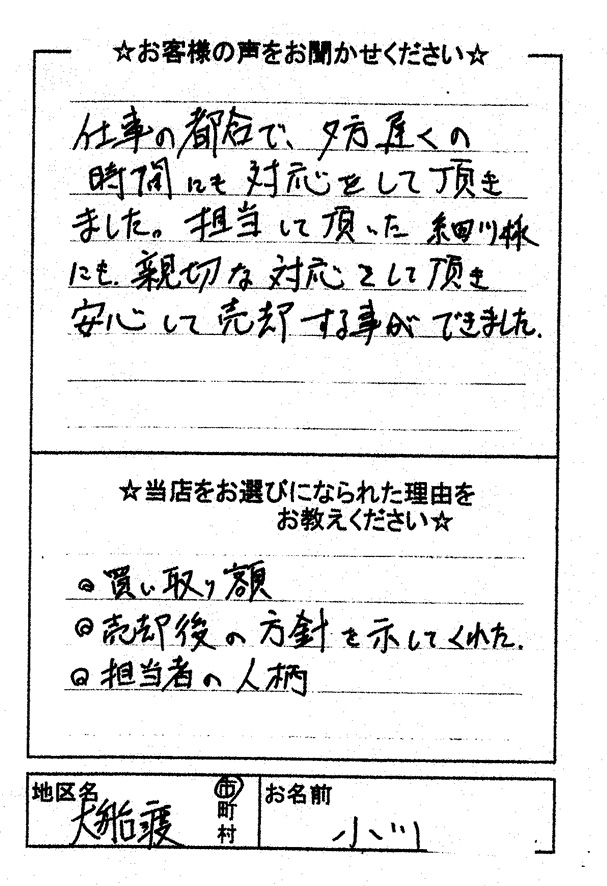 ☆お客様の声をお聞かせください☆
仕事の都合で、夕方遅くの
時間にも対応をして頂き
ました。担当して頂いた細川様
にも、親切な対応をして頂き
安心して売却する事ができました。
☆当店をお選びになられた理由を
お教えください☆
◎買い取り額
◎売却後の方針を示してくれた。
◎担当者の人柄
地区名
大船渡
市
町
村
お名前
小川